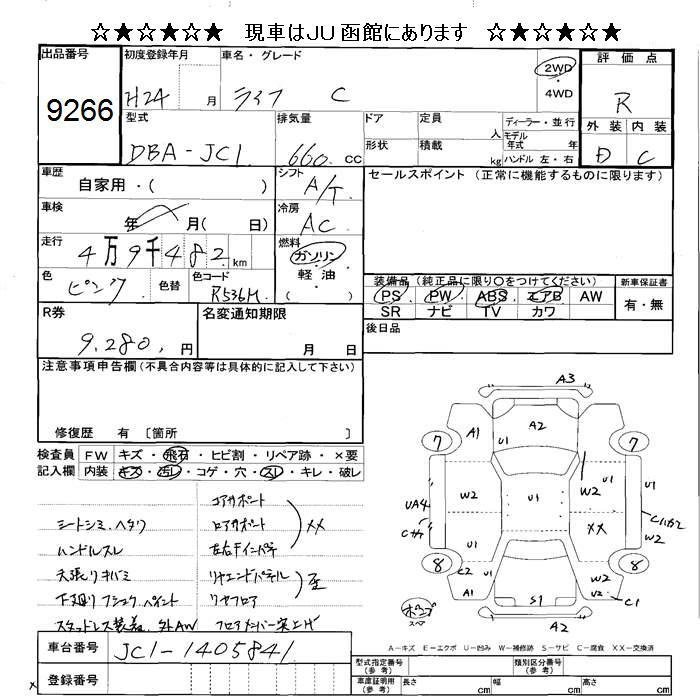 ☆★☆★☆★ 現車はJU函館にあります ☆★☆★☆★
出品番号 初度登録年月 車名・グレード 評価点
9266 H24 月 ライフ C 2WD 4WD R
型式 排気量 ドア 定員 人 ディーラー・並行 外装 内装
DBA-JC1 660 cc 形状 積載 kg モデル年式 年 ハンドル 左・右 D C
車歴 自家用・( ) シフト A/T セールスポイント (正常に機能するものに限ります)
車検 年 月( 日) 冷房 AC
走行 4万9千482 km 燃料 ガソリン
軽油 ( )
色 ピンク 色替 色コード R536M 装備品(純正品に限り○をつけてください) 新車保証書
PS PW ABS エアB AW 有・無
SR ナビ TV カワ
R券 9.280. 円 名変通知期限 月 日 後日品
注意事項申告欄(不具合内容等は具体的に記入して下さい)
修復歴 有 〔箇所 〕
検査員記入欄 FW キズ・飛石・ヒビ割・リペア跡・×要
内装 キズ・汚レ・コゲ・穴・スレ・キレ・破レ
コアサポート
シートシミ、ヘタリ ロアサポート XX
ハンドルスレ 左右Fインパネ
天張リキバミ リヤエンドパネル
下廻リ ペイント リヤフロア
スタッドレス装着、外AW フロアメンバー突上ゲ
A3
A1 U1 A2
7 7
UA4 W2 U1 W2 U1
U1 XX W2
8 8
C2 A1 S1 W2 U2 C1
スペア A2
A-キズ E-エクボ U-凹み W-補修跡 S-サビ C-腐食 XX-交換済
車台番号 JC1-1405841
登録番号
型式指定番号(参考) 類別区分番号(参考)
車庫証明用(参考) 長さ cm 幅 cm 高さ cm